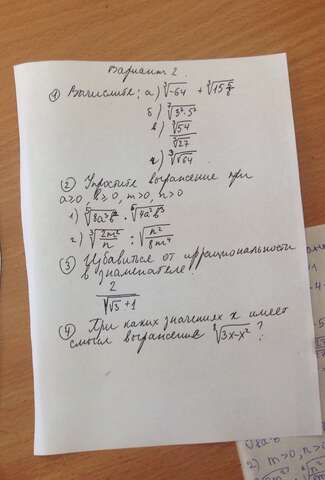 Вариант 2.
① Вычислите: а) ∛-64 + ∛15 5/8
б) ⁷√3²·5²
в) ∛54 / ∛27
г) ∛√64
② Упростите выражение при
a≥0, b≥0, m>0, n>0
1) ⁵√8a³b² · ⁵√4a²b³
2) ∛2m²/n : √n²/8m⁴
③ Избавиться от иррациональности
в знаменателе:
2 / √√5 + 1
④ При каких значениях x имеет
смысл выражение ⁸√3x-x² ?
2) m>0, n>